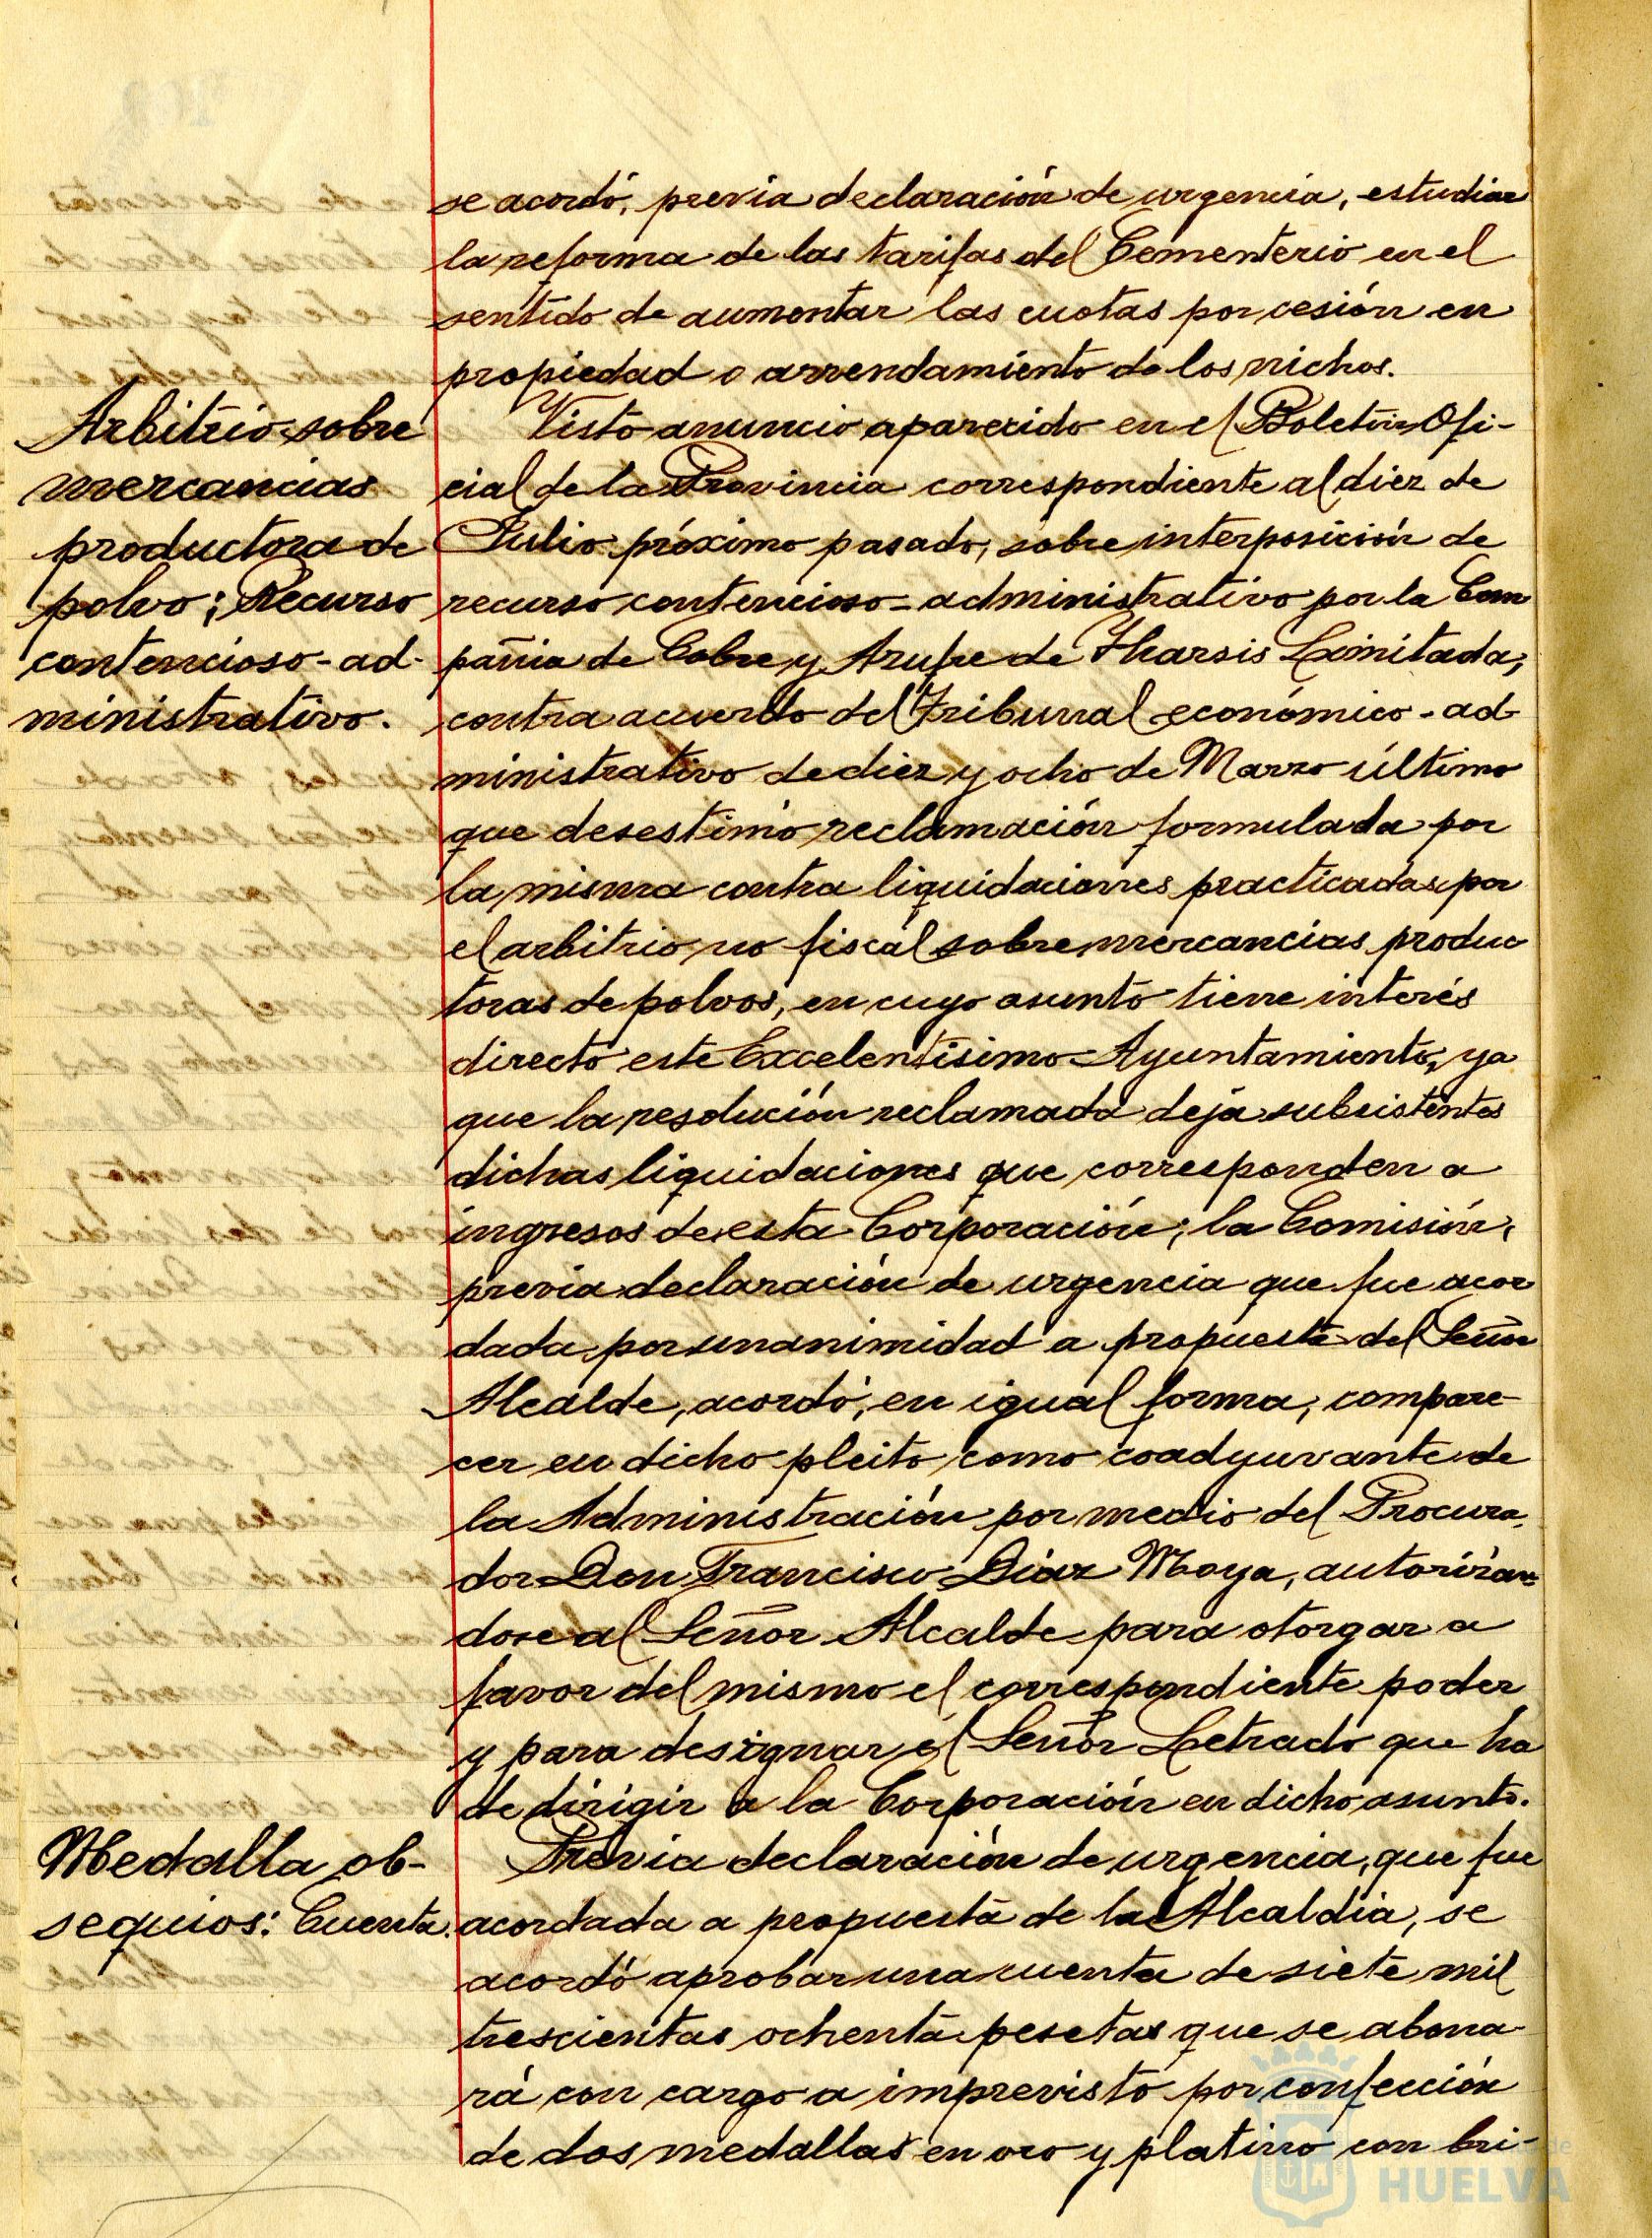 se acordó, previa declaración de urgencia, estudiar
la reforma de las tarifas del Cementerio en el
sentido de aumentar las cuotas por cesión en
propiedad o arrendamiento de los nichos.
Arbitrio sobre
mercancias
productora de
polvo; Recurso
contencioso-ad-
ministrativo.
Visto anuncio aparecido en el Boletín Ofi-
cial de la Provincia correspondiente al diez de
Julio próximo pasado, sobre interposición de
recurso contencioso-administrativo por la Com
pañia de Cobre y Azufre de Tharsis Limitada,
contra acuerdo del Tribunal económico-ad-
ministrativo de diez y ocho de Marzo último
que desestimó reclamación formulada por
la misma contra liquidaciones practicadas por
el arbitrio no fiscal sobre mercancias produc
toras de polvos, en cuyo asunto tiene interés
directo este Excelentísimo Ayuntamiento, ya
que la resolución reclamada deja subsistentes
dichas liquidaciones que corresponden a
ingresos de esta Corporación; la Comisión,
previa declaración de urgencia que fue acor
dada por unanimidad a propuesta del Señor
Alcalde, acordó, en igual forma, compare-
cer en dicho pleito como coadyuvante de
la Administración por medio del Procura-
dor Don Francisco Díaz Moya, autorizán-
dose al Señor Alcalde para otorgar a
favor del mismo el correspondiente poder
y para designar el Señor Letrado que ha
de dirigir a la Corporación en dicho asunto.
Medalla, ob-
sequios: Cuenta.
Previa declaración de urgencia, que fue
acordada a propuesta de la Alcaldía, se
acordó aprobar una cuenta de siete mil
trescientas ochenta pesetas que se abona-
rá con cargo a imprevisto por confección
de dos medallas en oro y platino con bri-
HUELVA